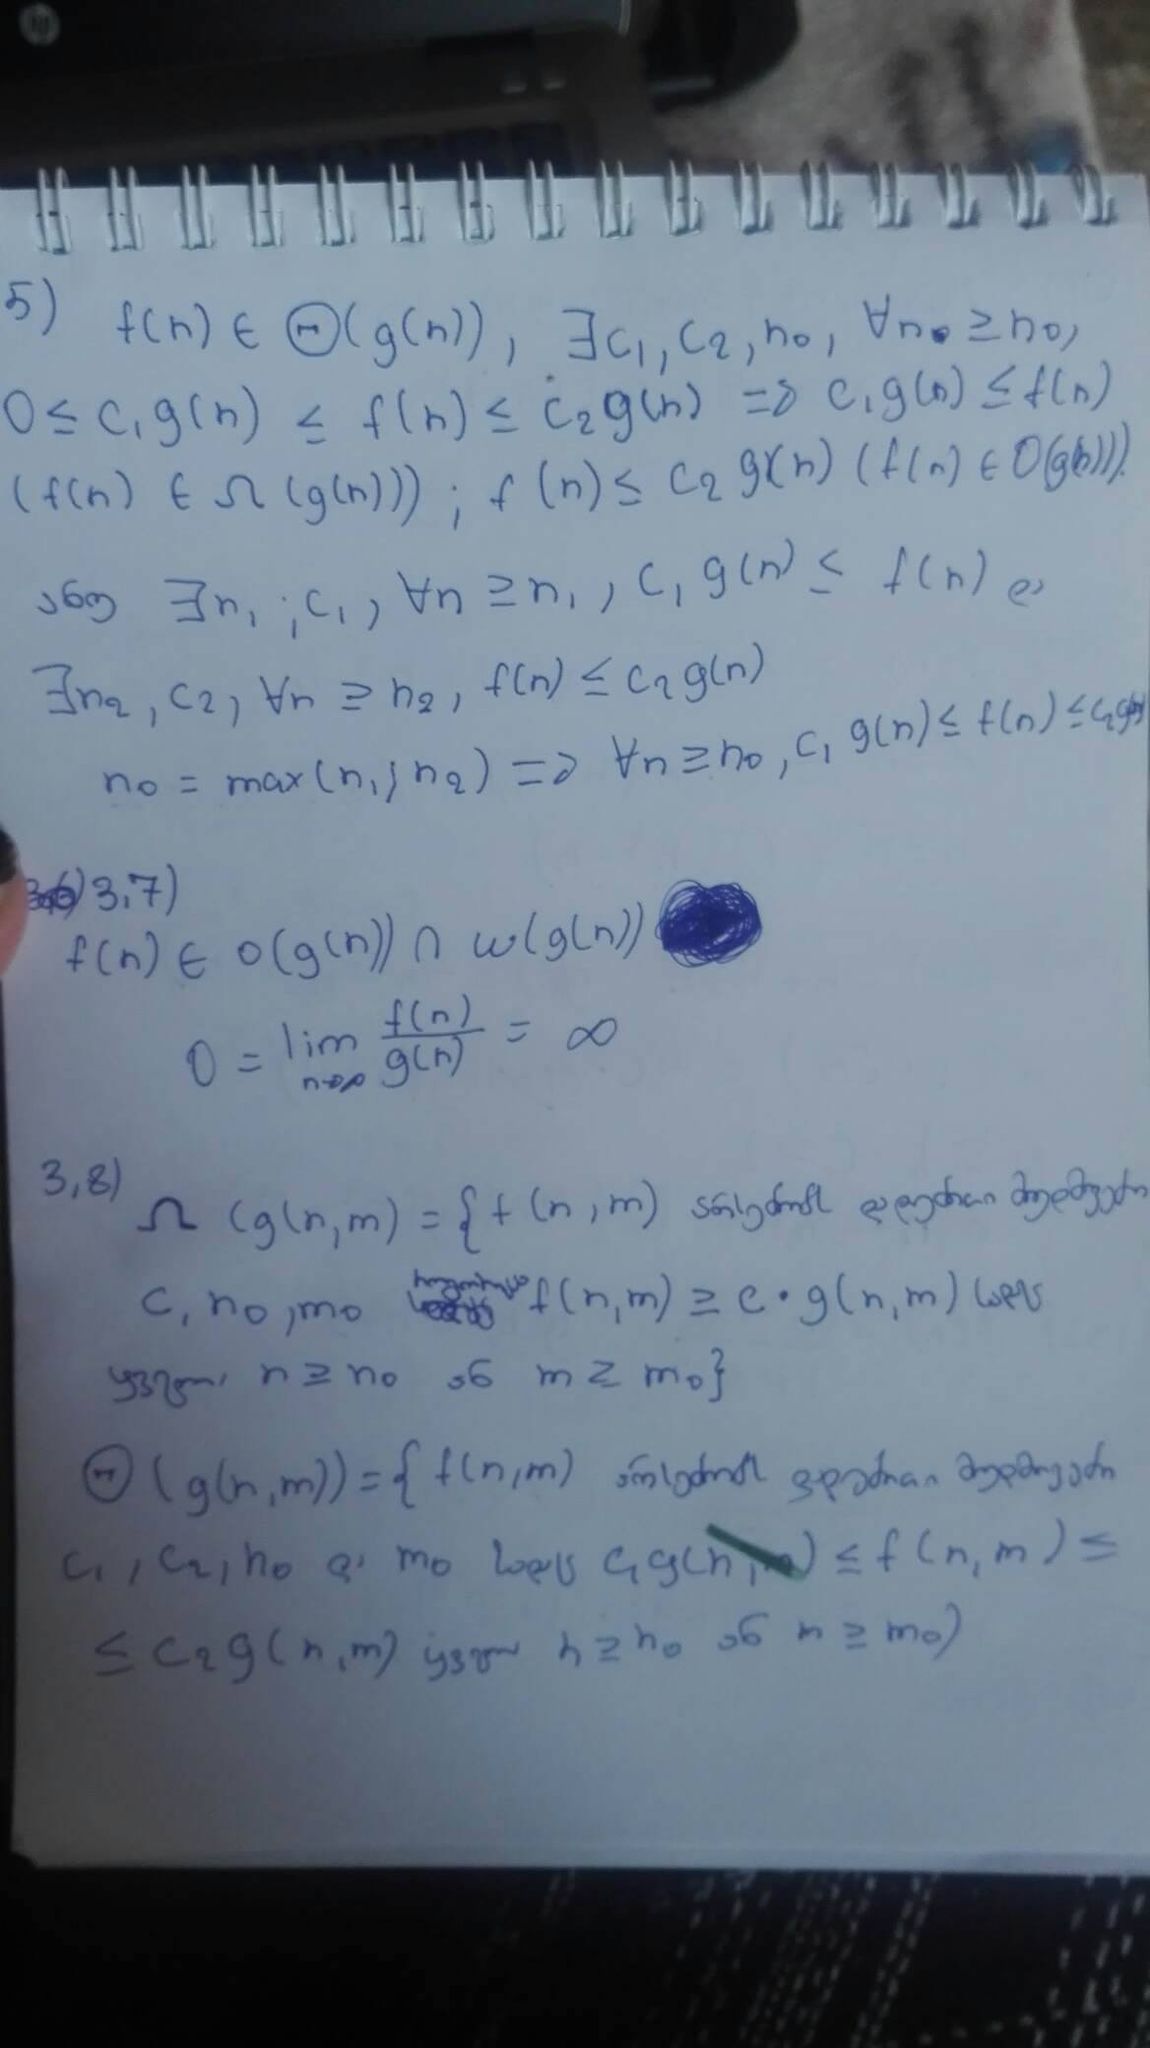 5) f(n) ∈ Θ(g(n)), ∃c₁, c₂, n₀, ∀n ≥ n₀,
0 ≤ c₁g(n) ≤ f(n) ≤ c₂g(n) ⇒ c₁g(n) ≤ f(n)
(f(n) ∈ Ω(g(n))); f(n) ≤ c₂g(n) (f(n) ∈ O(g(n))).
∃n₁; c₁, ∀n ≥ n₁, c₁g(n) ≤ f(n) და
∃n₂, c₂, ∀n ≥ n₂, f(n) ≤ c₂g(n)
n₀ = max(n₁; n₂) ⇒ ∀n ≥ n₀, c₁ g(n) ≤ f(n) ≤ c₂g(n)
3,7)
f(n) ∈ o(g(n)) ∩ ω(g(n))
0 = lim n→∞ f(n)/g(n) = ∞
3,8)
Ω (g(n,m) = {f(n,m) არსებობს დადებითი მუდმივები
c, n₀, m₀ f(n,m) ≥ c·g(n,m) სადაც
n ≥ n₀ ან m ≥ m₀}
Θ(g(n,m)) = {f(n,m) არსებობს დადებითი მუდმივები
c₁, c₂, n₀ და m₀ სადაც c₁g(n, ) ≤ f(n,m) ≤
≤ c₂g(n,m) n ≥ n₀ ან m ≥ m₀)